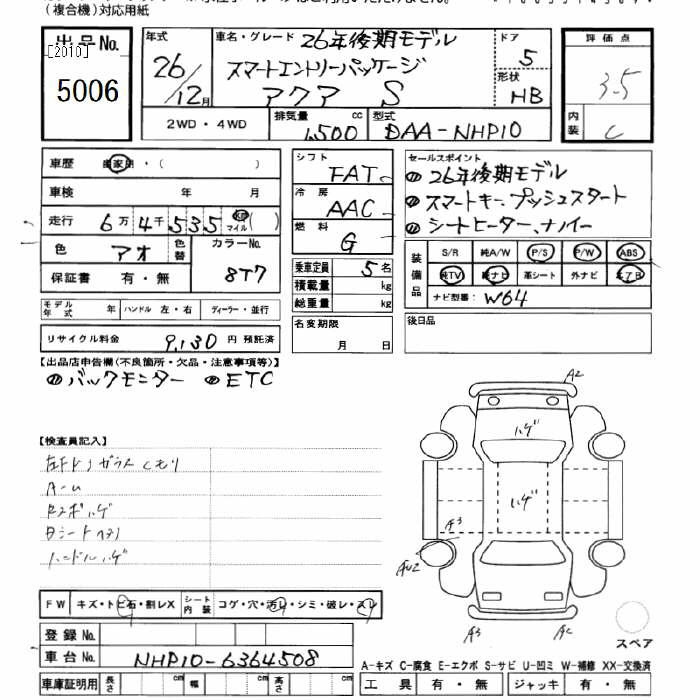 (複合機)対応用紙
出品No.
[2010]
5006
年式
26/12月
車名・グレード 26年後期モデル
スマートエントリーパッケージ
アクア S
ドア
5
形状
HB
2WD・4WD
排気量 cc
1,500
型式
DAA-NHP10
評価点
3.5
内装
C
車歴 自家用・( )
車検 年 月
走行 6万4千535 km マイル ( )
色 アオ 色替 カラーNo. 8T7
保証書 有・無
モデル年式 年 ハンドル 左・右 ディーラー・並行
リサイクル料金 9,130 円 預託済
シフト FAT
冷房 AAC
燃料 G
乗車定員 5名
積載量 kg
総重量 kg
名変期限
月 日
セールスポイント
26年後期モデル
スマートキー、プッシュスタート
シートヒーター、ナノイー
装備品
S/R 純A/W P/S P/W ABS
純TV 純ナビ 革シート 外ナビ エアB
ナビ型番: W64
後日品
【出品店申告欄(不良箇所・欠品・注意事項等)】
バックモニター ETC
【検査員記入】
ハンドルハゲ
A2
ハゲ
ハゲ
A3
AU2
A3
スペア
FW キズ・トビ石・割レX シート内装 コゲ・穴・汚レ・シミ・破レ・スレ
登録No.
車台No. NHP10-6364508
車庫証明用 長さ cm 幅 cm 高さ cm
A-キズ C-腐食 E-エクボ S-サビ U-凹ミ W-補修 XX-交換済
工具 有・無 ジャッキ 有・無